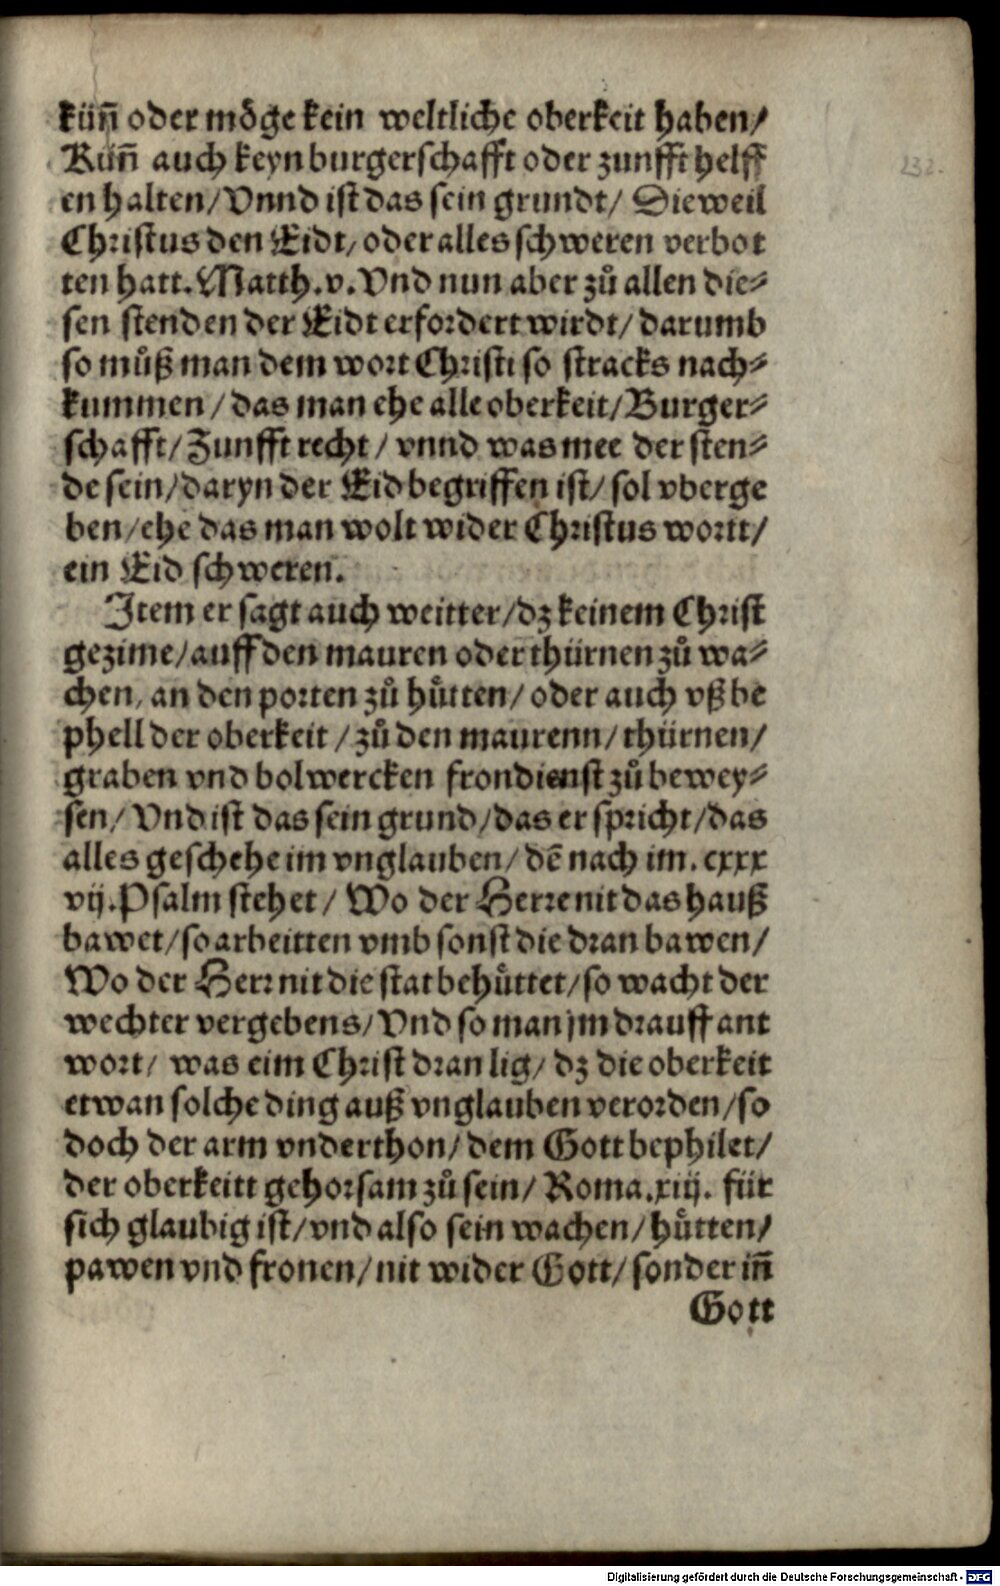 künñ oder mo̊ge kein weltliche oberkeit haben/
Künñ auch keyn burgerschafft oder zunfft helff
en halten/ Vnnd ist das sein grundt/ Dieweil
Christus den Eidt/ oder alles schweren verbot
ten hatt. Matth.v. Vnd nun aber zů allen die⸗
sen stenden der Eidt erfordert wirdt/ darumb
so můß man dem wort Christi so stracks nach⸗
kummen/ das man ehe alle oberkeit/ Burger⸗
schafft/ Zunfft recht/ vnnd was mee der sten⸗
de sein/ daryn der Eid begriffen ist/ sol vberge
ben/ ehe das man wolt wider Christus wortt/
ein Eid schweren.
Item er sagt auch weitter/ dz keinem Christ
gezime/ auff den mauren oder thürnen zů wa⸗
chen, an den porten zů hůtten/ oder auch vß be
phell der oberkeit/ zů den maurenn/ thürnen/
graben vnd bolwercken frondienst zů bewey⸗
sen/ Vnd ist das sein grund/ das er spricht/ das
alles geschehe im vnglauben/ dē nach im. cxxx
vij. Psalm stehet/ Wo der Herre nit das hauß
bawet/ so arbeitten vmb sonst die dran bawen/
Wo der Herr nit die stat behůttet/ so wacht der
wechter vergebens/ Vnd so man jm drauff ant
wort/ was eim Christ dran lig/ dz die oberkeit
etwan solche ding auß vnglauben verorden/ so
doch der arm vnderthon/ dem Gott bephilet/
der oberkeitt gehorsam zů sein/ Roma.xiij. für
sich glaubig ist/ vnd also sein wachen/ hůtten/
pawen vnd fronen/ nit wider Gott/ sonder inñ
Gott
232.
Digitalisierung gefördert durch die Deutsche Forschungsgemeinschaft - DFG